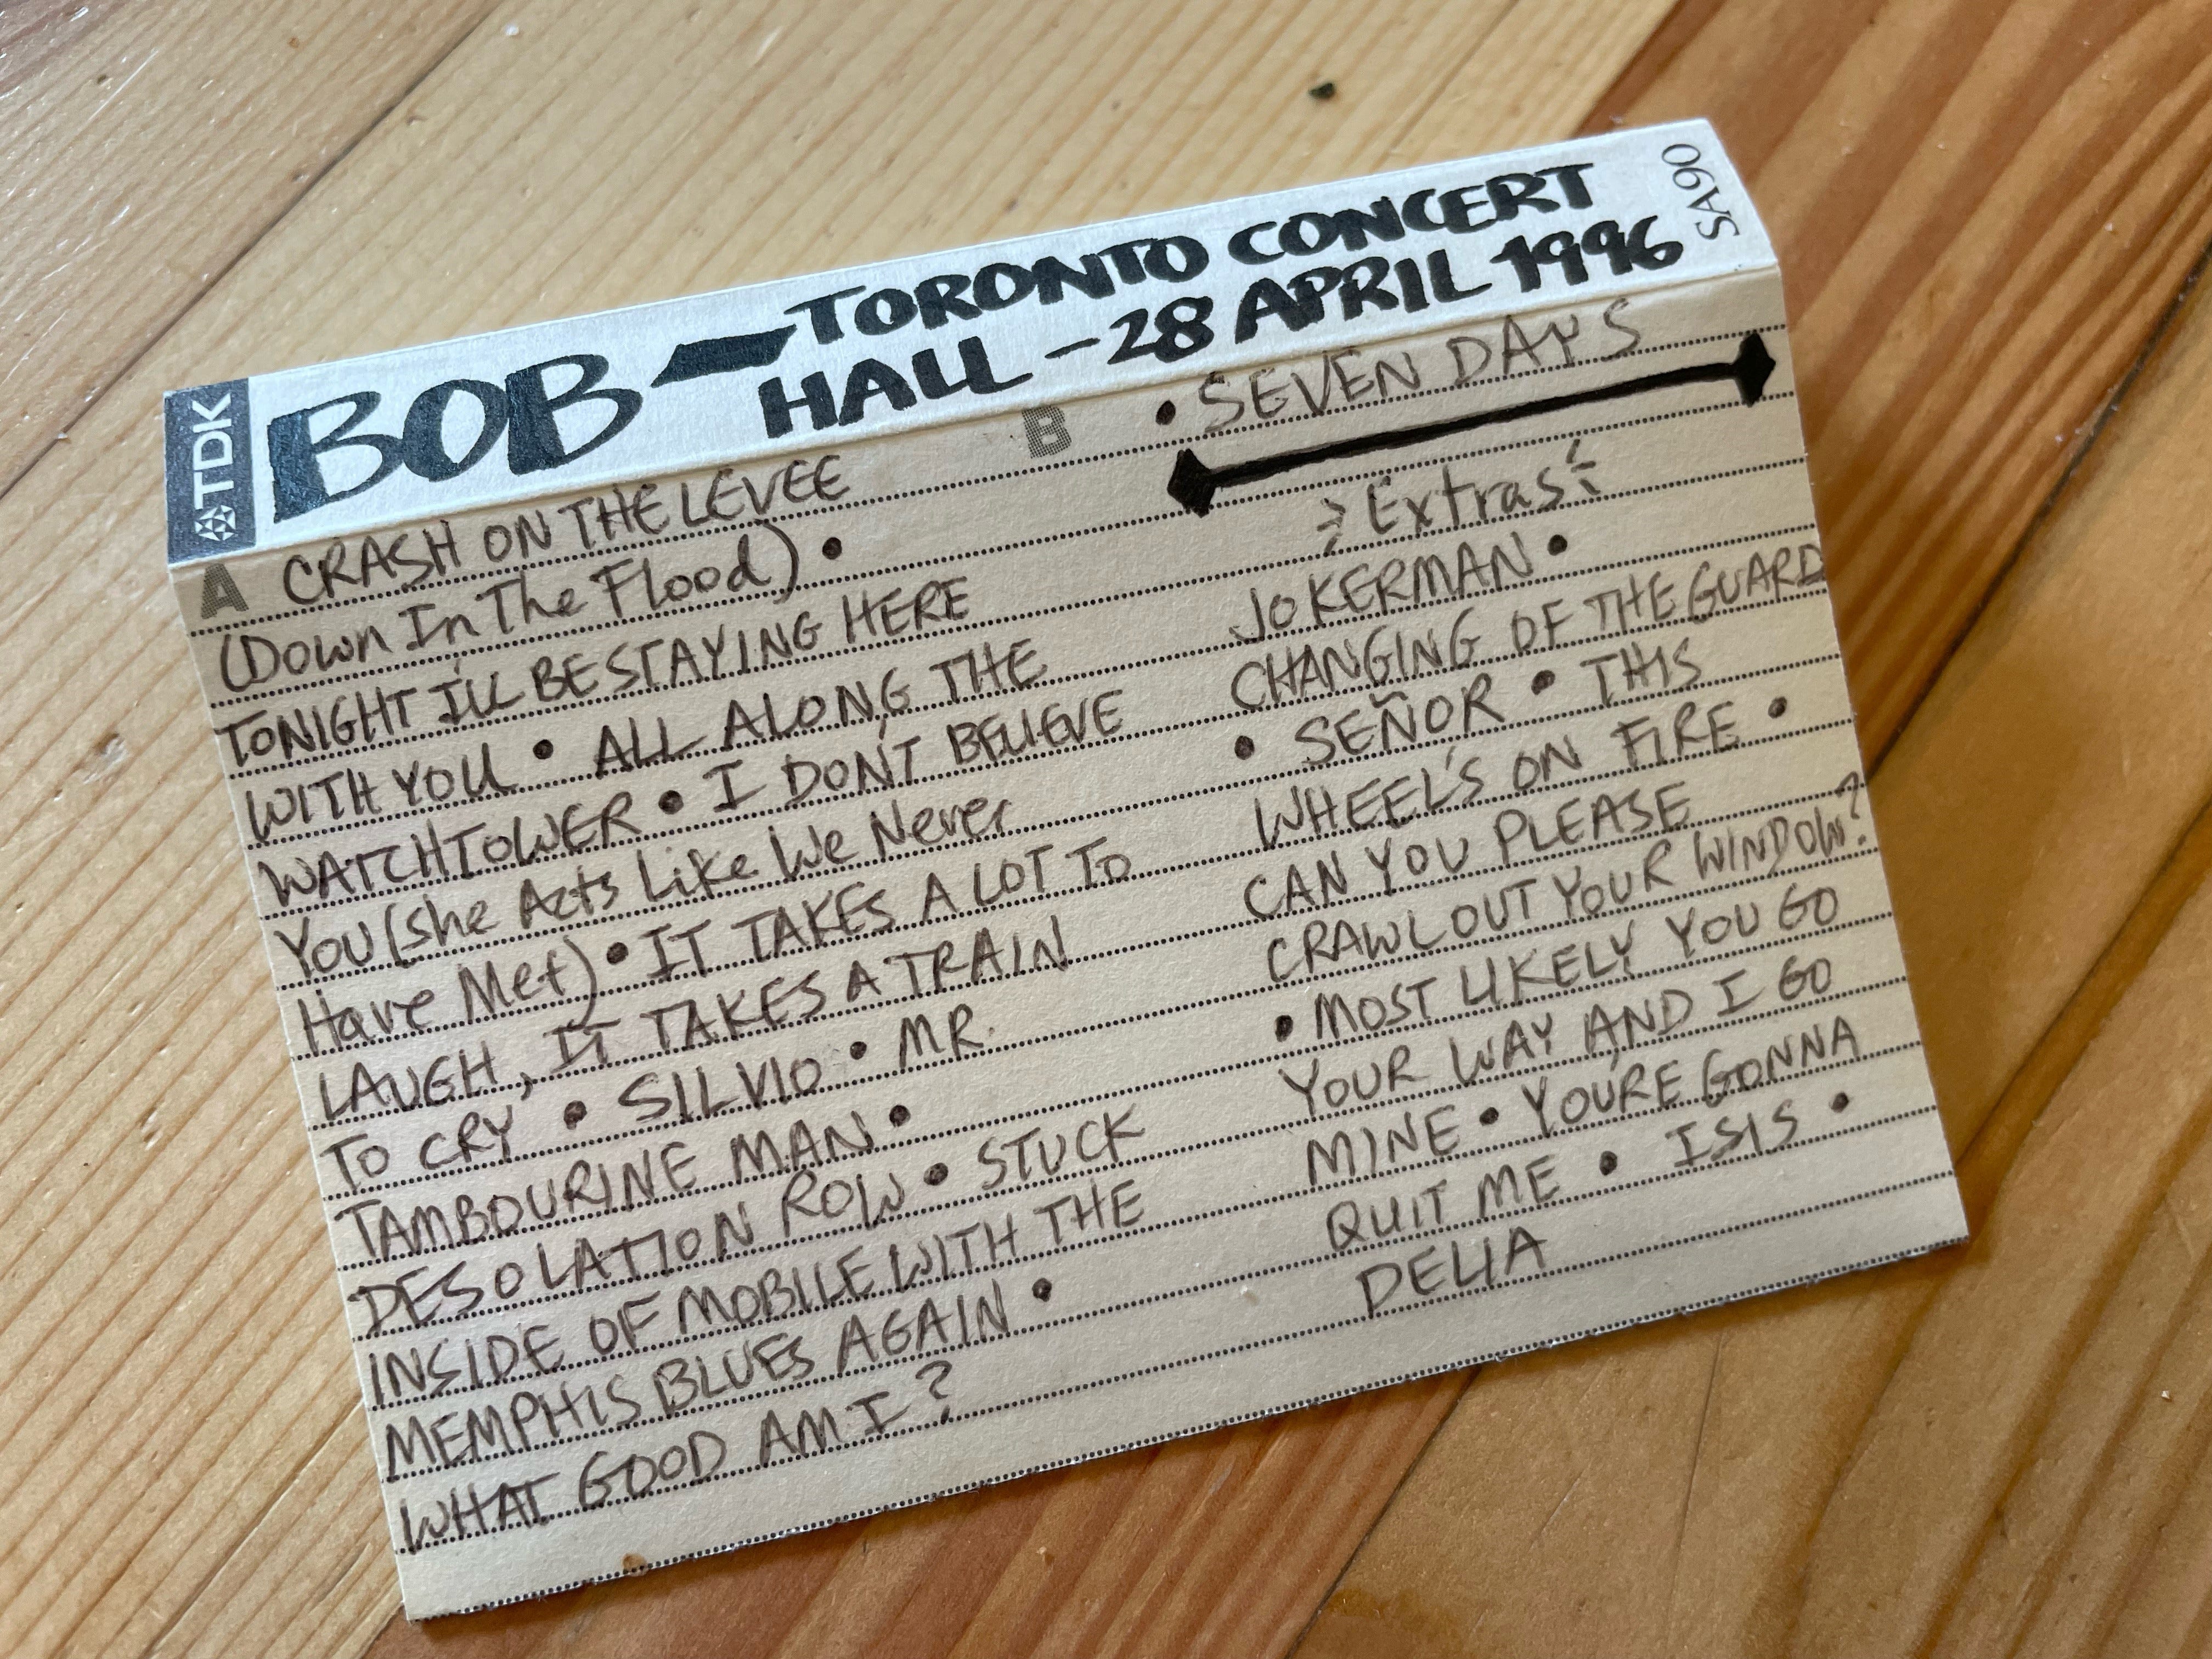 TDK
BOB — TORONTO CONCERT
HALL – 28 APRIL 1996
SA90
A CRASH ON THE LEVEE
(Down In The Flood) •
TONIGHT I'LL BE STAYING HERE
WITH YOU • ALL ALONG THE
WATCHTOWER • I DON'T BELIEVE
YOU (She Acts Like We Never
Have Met) • IT TAKES A LOT TO
LAUGH, IT TAKES A TRAIN
TO CRY • SILVIO • MR.
TAMBOURINE MAN •
DESOLATION ROW • STUCK
INSIDE OF MOBILE WITH THE
MEMPHIS BLUES AGAIN •
WHAT GOOD AM I?
B • SEVEN DAYS
Extras
JOKERMAN •
CHANGING OF THE GUARD
• SEÑOR • THIS
WHEEL'S ON FIRE •
CAN YOU PLEASE
CRAWL OUT YOUR WINDOW?
• MOST LIKELY YOU GO
YOUR WAY AND I GO
MINE • YOU'RE GONNA
QUIT ME • ISIS •
DELIA